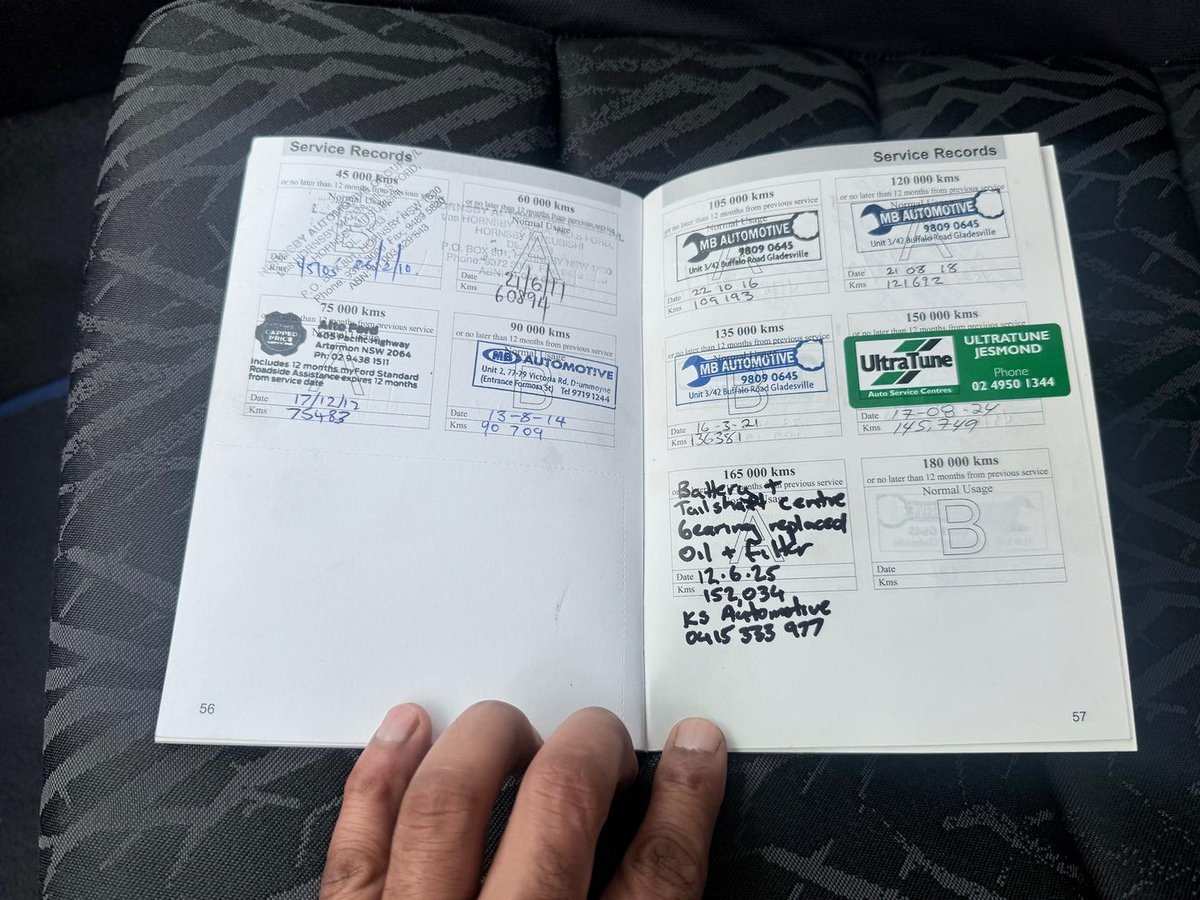 Service Records
45 000 kms
or no later than 12 months from previous service
Normal Usage
Date 26/2/10.
Kms
60 000 kms
or no later than 12 months from previous service
Normal Usage
A
Date 21/6/11
Kms 60894
75 000 kms
or no later than 12 months from previous service
CAPPED PRICE SERVICE
Alto Ford
Pacific Highway
Artarmon NSW 2064
Ph: 02 9438 1511
Includes 12 months myFord Standard
Roadside Assistance expires 12 months
from service date
A
Date 17/12/12
Kms 75483
90 000 kms
or no later than 12 months from previous service
MB AUTOMOTIVE
Unit 2, 77-79 Victoria Rd, Drummoyne
(Entrance Formosa St) Tel 9719 1244
B
Date 13-8-14
Kms 90 709
56
Service Records
105 000 kms
or no later than 12 months from previous service
Normal Usage
MB AUTOMOTIVE
9809 0645
Unit 3/42 Buffalo Road Gladesville
Date 22 10 16
Kms 109 193
120 000 kms
or no later than 12 months from previous service
Normal Usage
MB AUTOMOTIVE
9809 0645
Unit 3/42 Buffalo Road Gladesville
Date 21 08 18
Kms 121692
135 000 kms
or no later than 12 months from previous service
MB AUTOMOTIVE
9809 0645
Unit 3/42 Buffalo Road Gladesville
B
Date 16-3-21
Kms 136381
150 000 kms
or no later than 12 months from previous service
UltraTune
Auto Service Centres
ULTRATUNE
JESMOND
Phone
02 4950 1344
Date 17-08-24
Kms 145,749
165 000 kms
or no later than 12 months from previous service
Battery +
Tailshaft centre
bearing replaced
Oil + Filter
A
Date 12.6.25
Kms 152,034
KS Automotive
0415 333 977
180 000 kms
or no later than 12 months from previous service
Normal Usage
B
Date
Kms
57